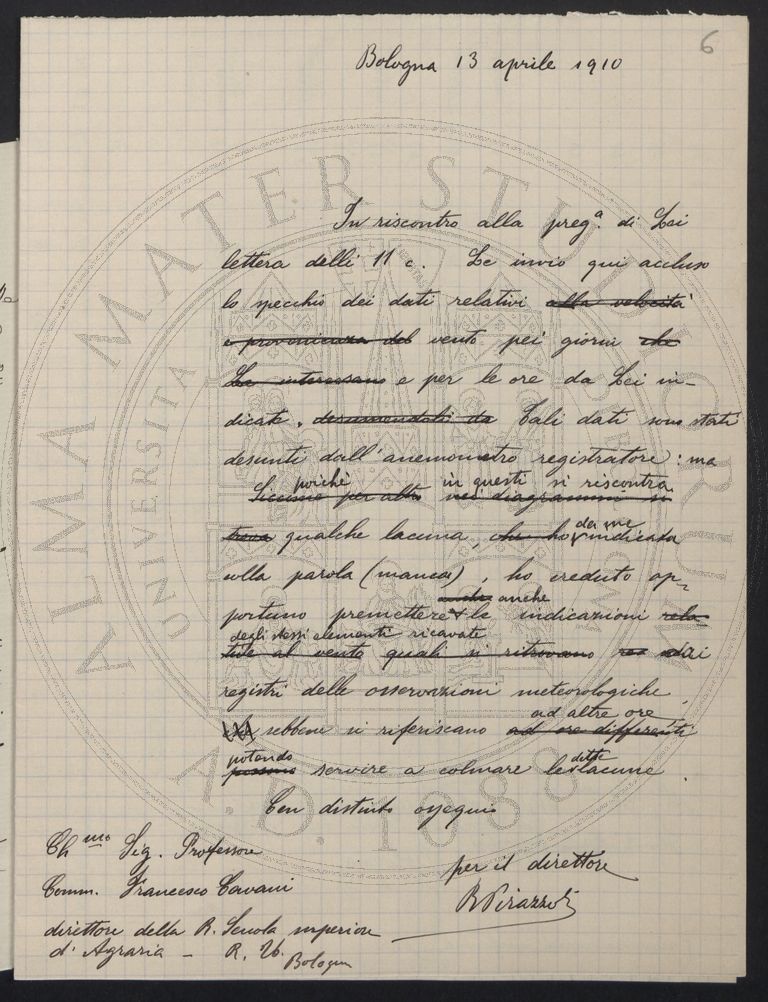 6
Bologna 13 aprile 1910
In riscontro alla preg.ª di Lei
lettera delli 11 c. Le invio qui accluso
lo specchio dei dati relativi alla velocità
e provenienza del vento pei giorni che
Le interessano e per le ore da Lei in-
dicate, desumendoli da Tali dati sono stati
desunti dall'anemometro registratore: ma
porchè in questi si riscontra
Siccome per altro nei diagrammi si
trova qualche lacuna, che ho da me indicata
colla parola (manca), ho creduto op-
anche
portuno premettere le indicazioni rela-
degli stessi elementi ricavate
tive al vento quali si ritrovano dai
registri delle osservazioni meteorologiche,
ad altre ore
sebbene si riferiscano ad ore differenti
potendo dette
possono servire a colmare le lacune.
Con distinto ossequio
Ch.mo Sig. Professore
Comm. Francesco Cavani
direttore della R. Scuola superiore
d'Agraria - R. U.
Bologna
per il direttore
R Pirazzoli
ALMA MATER STUDIORUM
UNIVERSITA
A.D. 1088